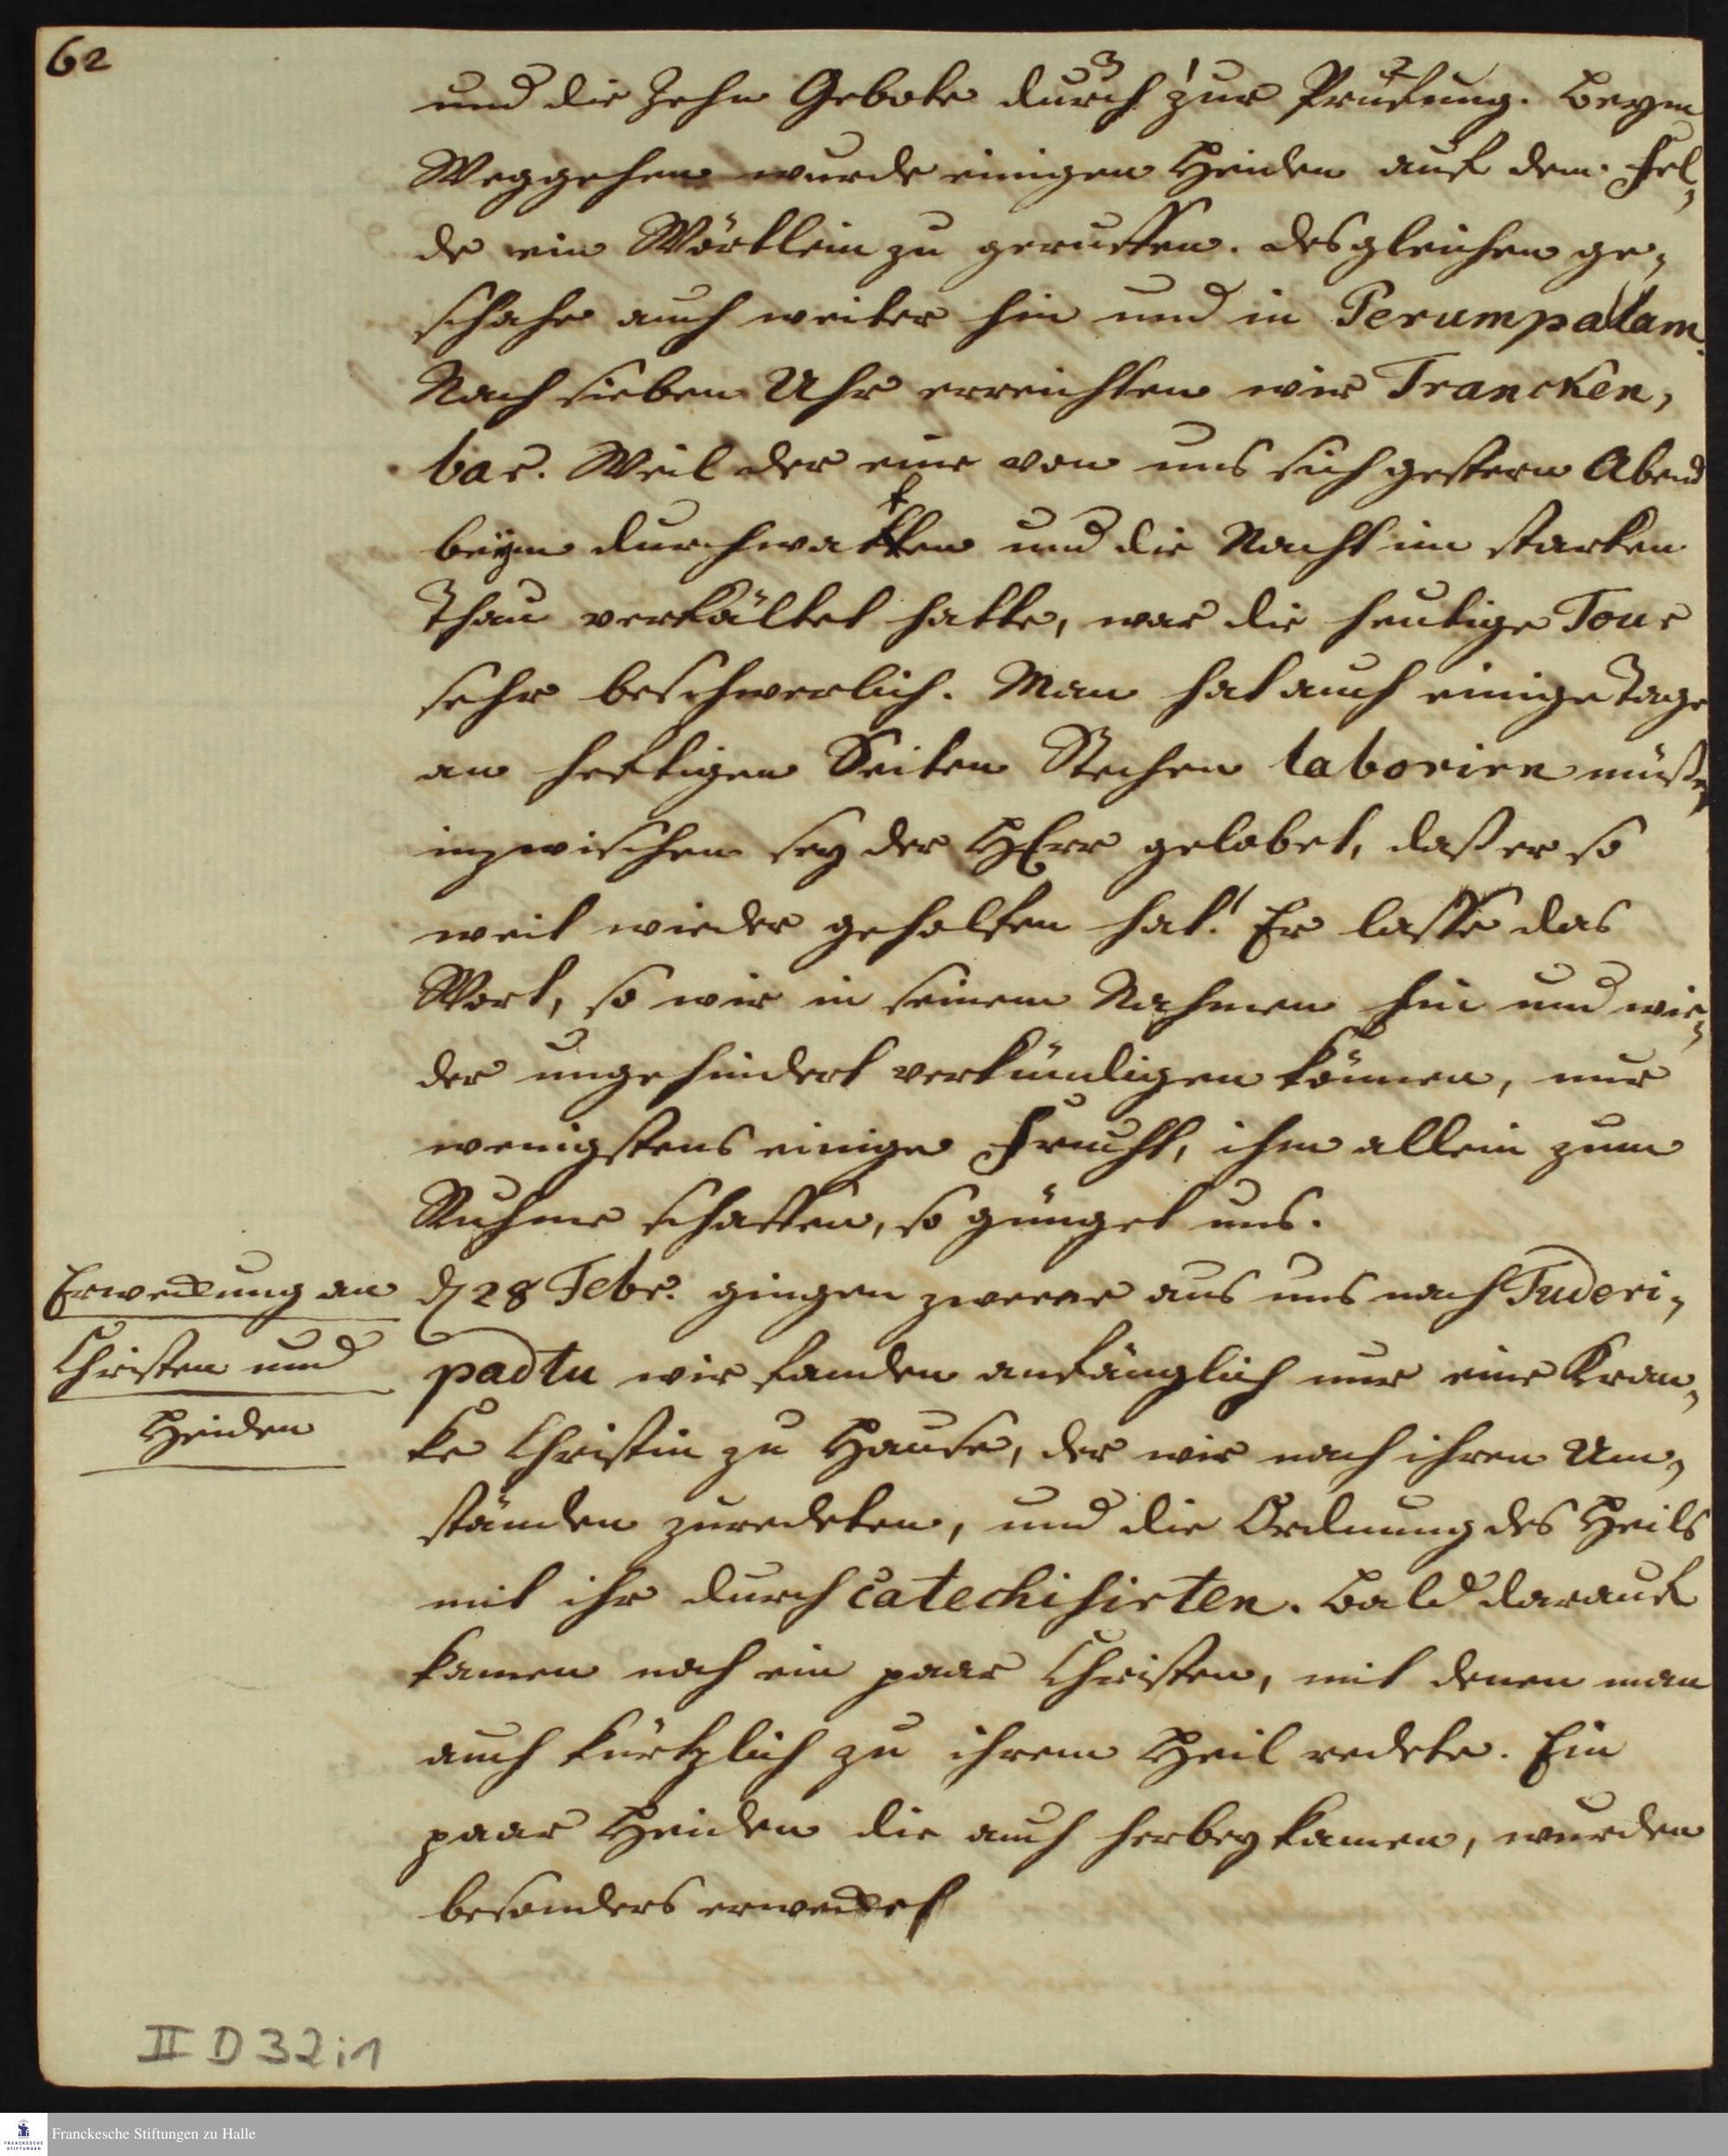 62
und die Zehn Gebote durch zur Prüfung. Beym
3 1 2
Weggehen wurde einigen Heiden auf dem Fel,
de ein Wörtlein zu geruffen. desgleichen ge,
schahe auch weiter hin und in Perumpallam.
Nach sieben Uhr erreichten wir Trancken,
bar. Weil der eine von uns sich gestern Abend
beym durchwatten und die Nacht im starken
Thau verkältet hatte, war die heutige Tour
sehr beschwerlich. Man hat auch einige Tage
an heftigen Seiten Stechen laboriren müßen
inzwischen sey der HErr gelobet, daß er so
weit wieder geholfen hat! Er lasse das
Wort, so wir in seinem Nahmen hin und wie,
der ungehindert verkündigen können, nur
wenigstens einige Frucht, ihm allein zum
Ruhme schaffen, so gnüget uns.
Erweckung an
Christen und
Heiden
d 28 Febr. gingen zweene aus uns nach Tuderi,
padtu wir fanden anfänglich nur eine Kran,
ke Christin zu Hause, der wir nach ihren Um,
ständen zuredeten, und die Ordnung des Heils
mit ihr durch catechisirten. Bald darauf
kamen noch ein paar Christen, mit denen man
auch kürtzlich zu ihrem Heil redete. Ein
paar Heiden die auch herbey kamen, wurden
besonders erwecket
II D 32:1
FRANCKESCHE STIFTUNGEN
Franckesche Stiftungen zu Halle